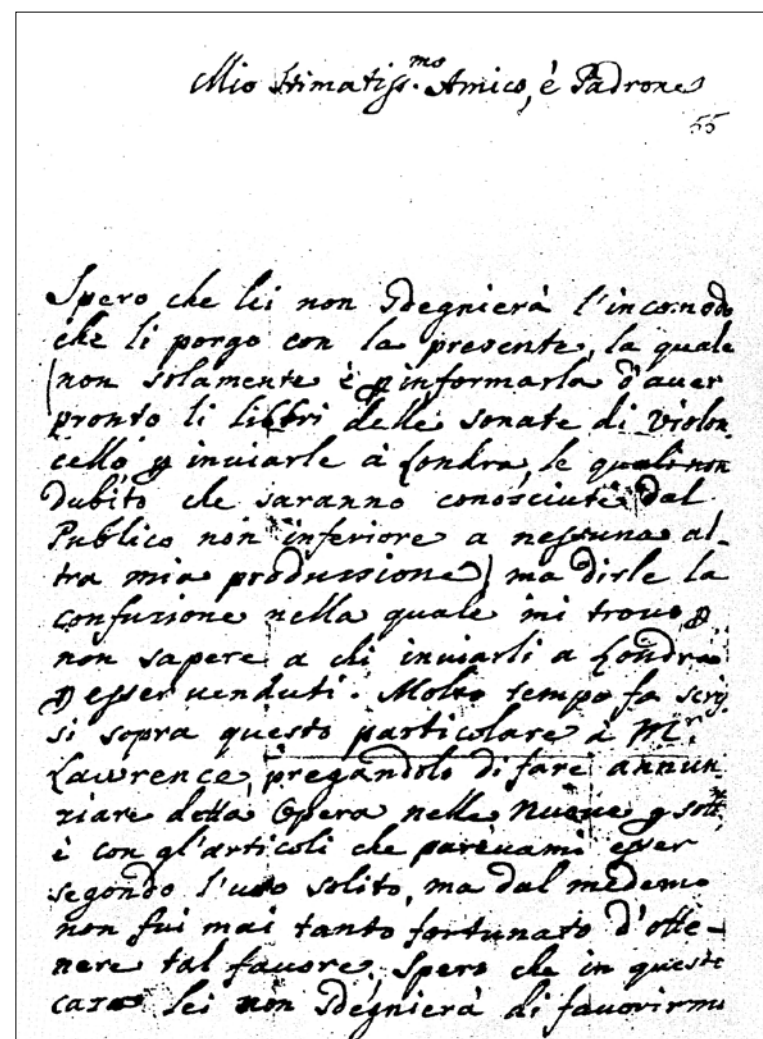 Mio Stimatiss.mo Amico, è Padrone
55
Spero che lei non sdegnierà l'incomodo
che li porgo con la presente, la quale
(non solamente è p informarla d'aver
pronto li libri delle sonate di violon
cello, p inviarle à Londra, le quali non
dubito che saranno conosciute dal
Publico non inferiore a nessuna al-
tra mia produssione) ma dirle la
confusione nella quale mi trovo p
non sapere a chi inviarli a Londra
p esser venduti. Molto tempo fa scris
si sopra questo particolare à Mr.
Lawrence, pregandolo di fare annun
ziare detta Opera nelle Nuove p
è con gl'articoli che parevami esser
segondo l'uso solito, ma dal medemo
non fui mai tanto fortunato d'otte-
nere tal favore. Spero che in questo
caso lei non sdegnierà di favorirmi